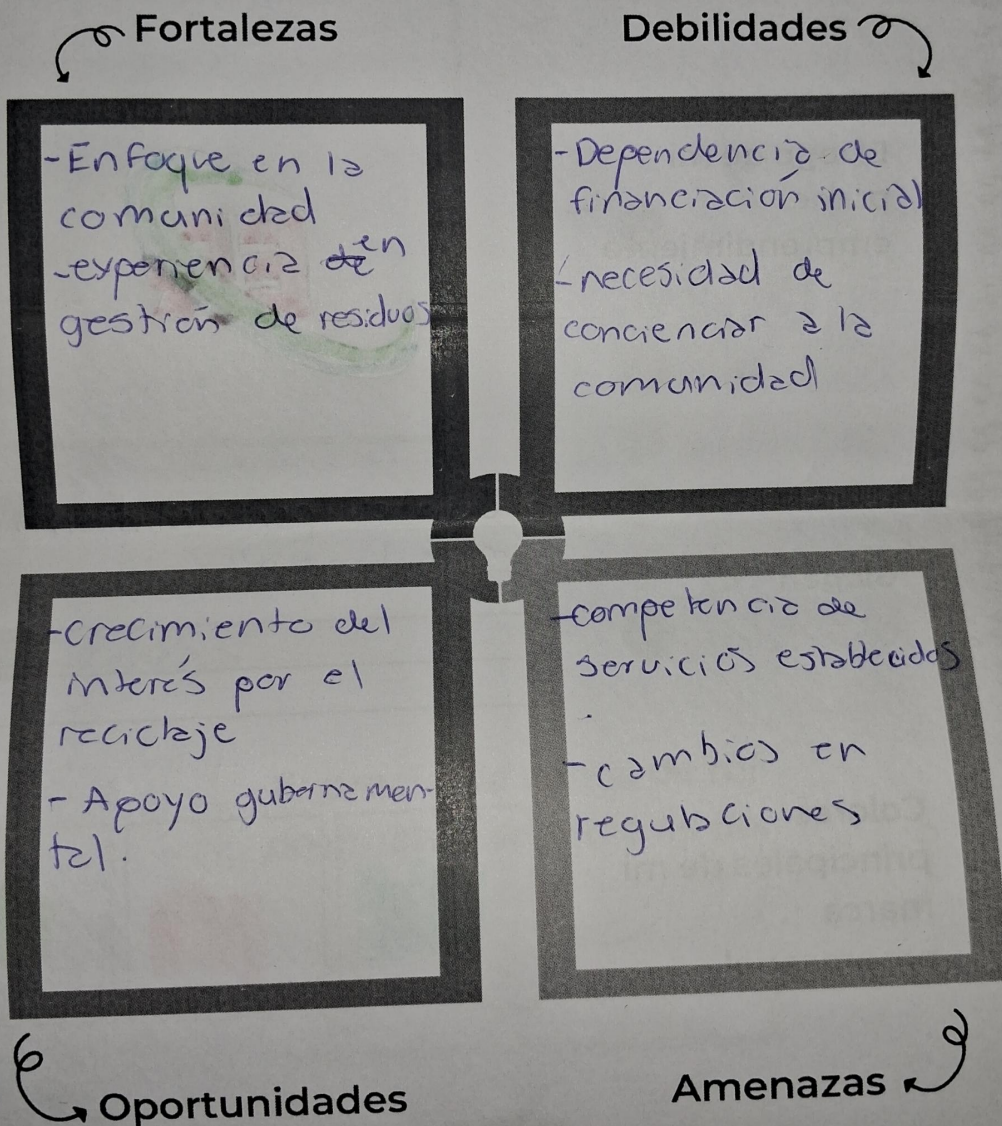 Fortalezas
- Enfoque en la
comunidad
- experiencia en
gestión de residuos
Debilidades
- Dependencia de
financiación inicial
- necesidad de
concienciar a la
comunidad
- crecimiento del
interés por el
reciclaje
- Apoyo gubernamen-
tal.
Oportunidades
- competencia de
servicios establecidos
- cambios en
regulaciones
Amenazas